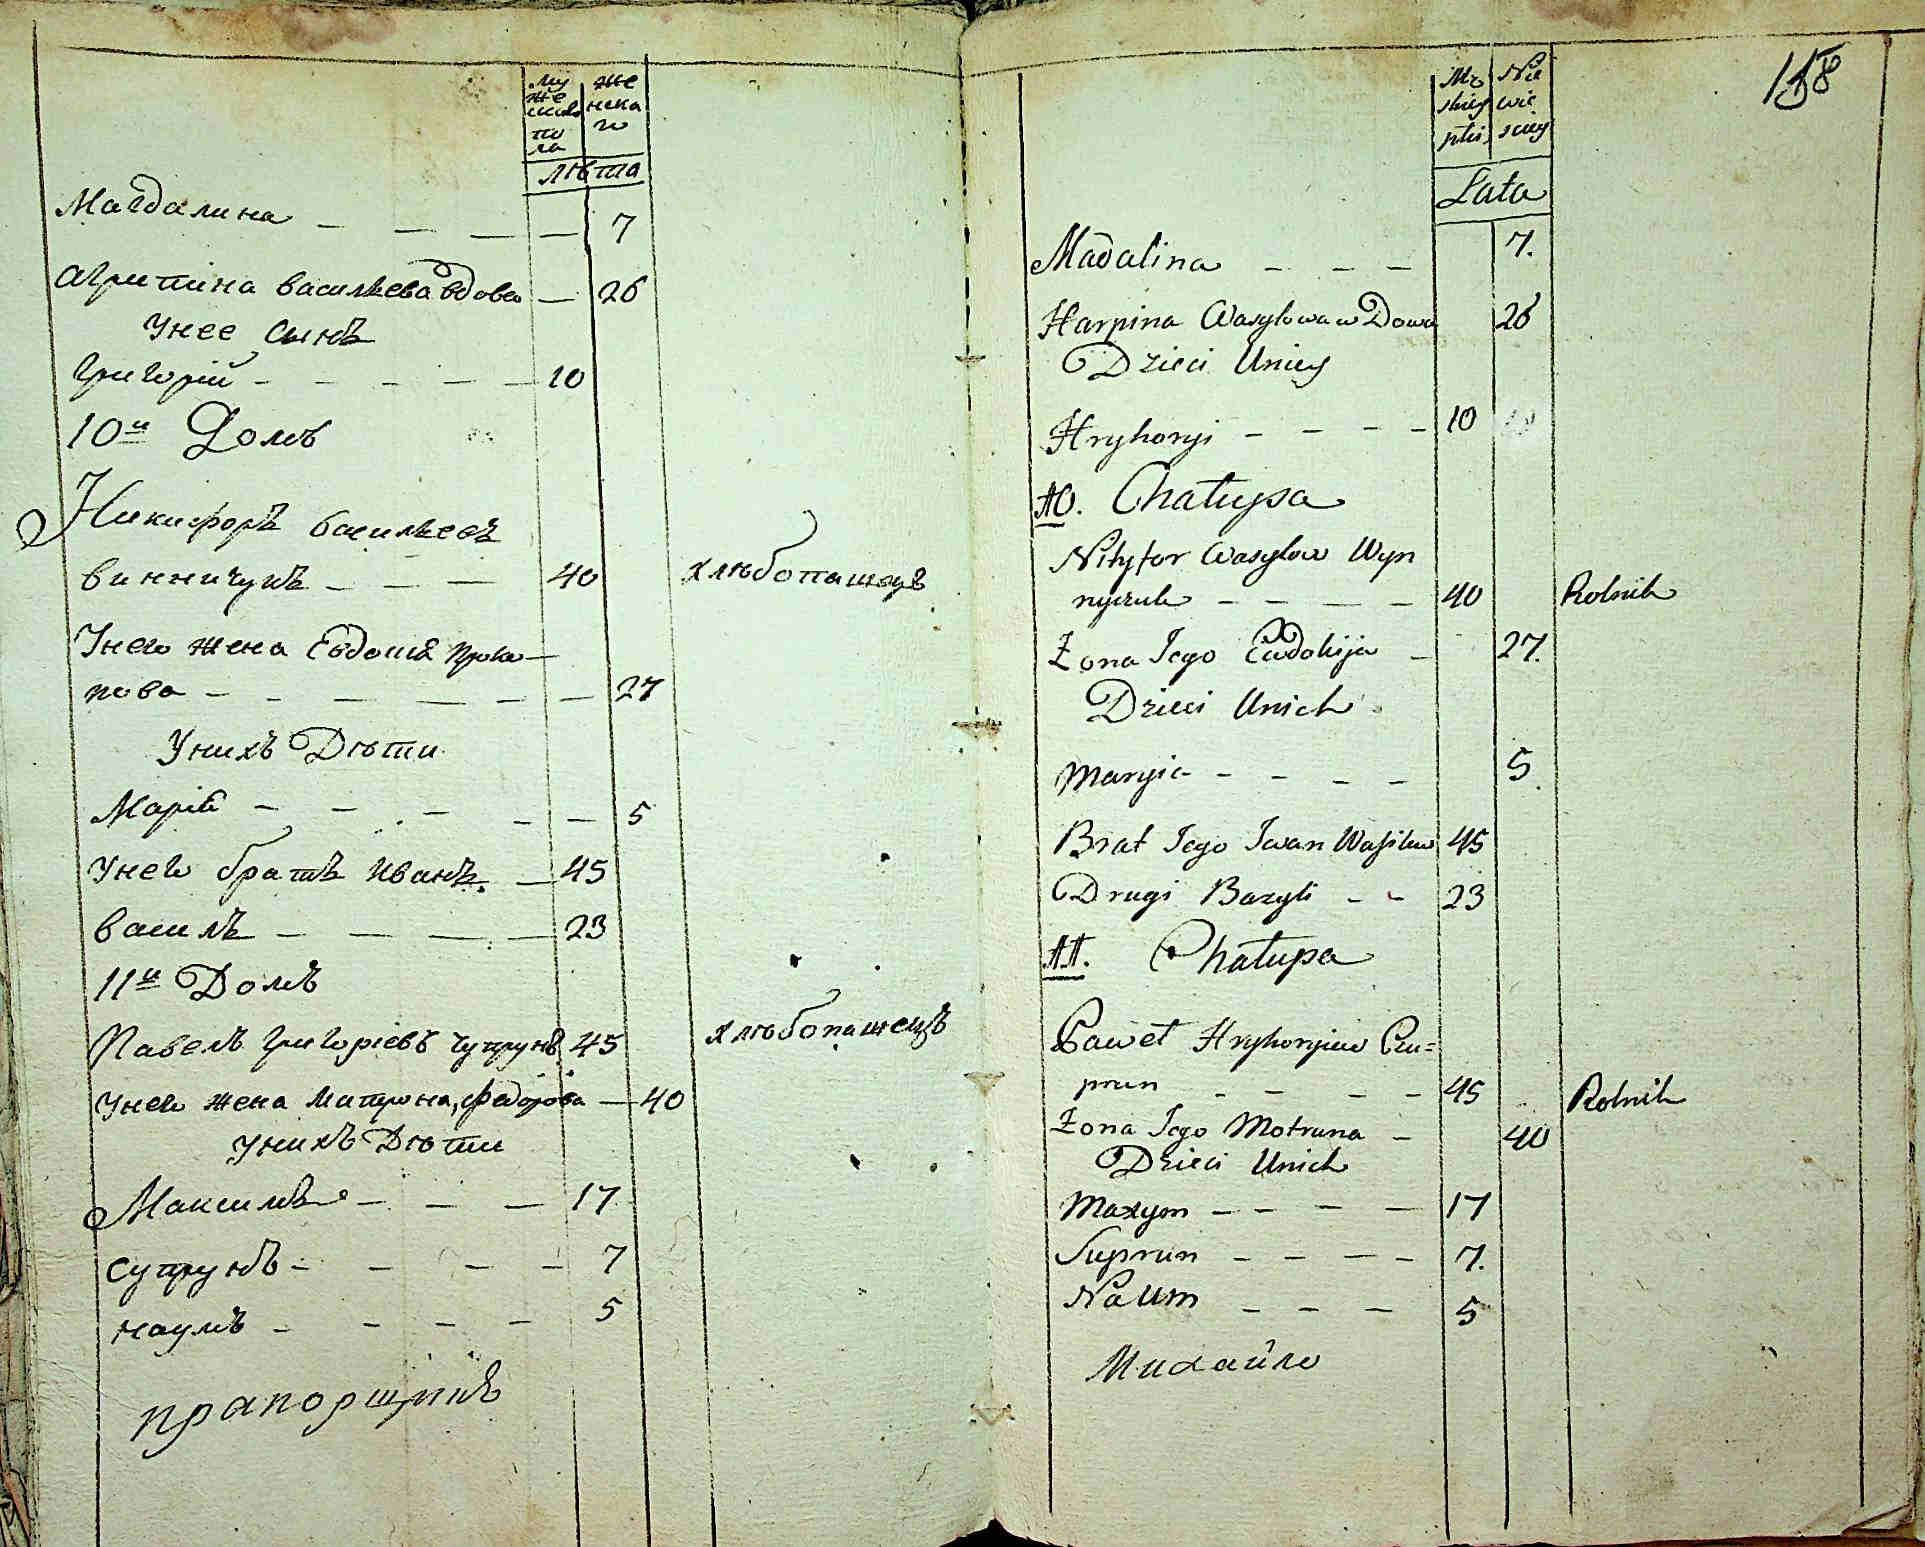 му же
же нска
скаго го
по
ла
лѣта
Магдалина — — — — 7
Агрипина васильева вдова — 26
Унее Сынъ
Григорій — — — — — 10
10й Домъ
Никифоръ васильевъ
винничукъ — — — 40 хлѣбопашецъ
Унего жена Евдокія Проко-
пова — — — — — — 27
Унихъ Дѣти
Марія — — — — — 5
Унего братъ Иванъ. — 45
василь — — — — 23
11й Домъ
Павелъ Григоріевъ Чупрунъ 45 хлѣбопашецъ
Унего жена Матрона, Федорова — 40
Унихъ Дѣти
Максимъ — — — 17
супрунъ — — — — 7
наумъ — — — — 5
прапорщикъ
158
Mę Nie
skiey wie
płci sciey
Lata
Madalina — — — 7.
Harpina Wasylowa wDowa 26
Dzieci Uniey
Hryhoryi — — — — 10
10. Chałupa
Nikyfor Wasylow Wyn
nyczuk — — — — 40 Rolnik
Żona Jego Ewdokija — 27.
Dzieci Unich
Maryia — — — — 5
Brat Jego Iwan Wasilew 45
Drugi Bazyli — — 23
11. Chałupa
Paweł Hryhoryiew Czu=
prun — — — — 45 Rolnik
Żona Jego Motruna — 40
Dzieci Unich
Maxym — — — — 17
Suprun — — — — 7.
Naum — — — 5
Михайло